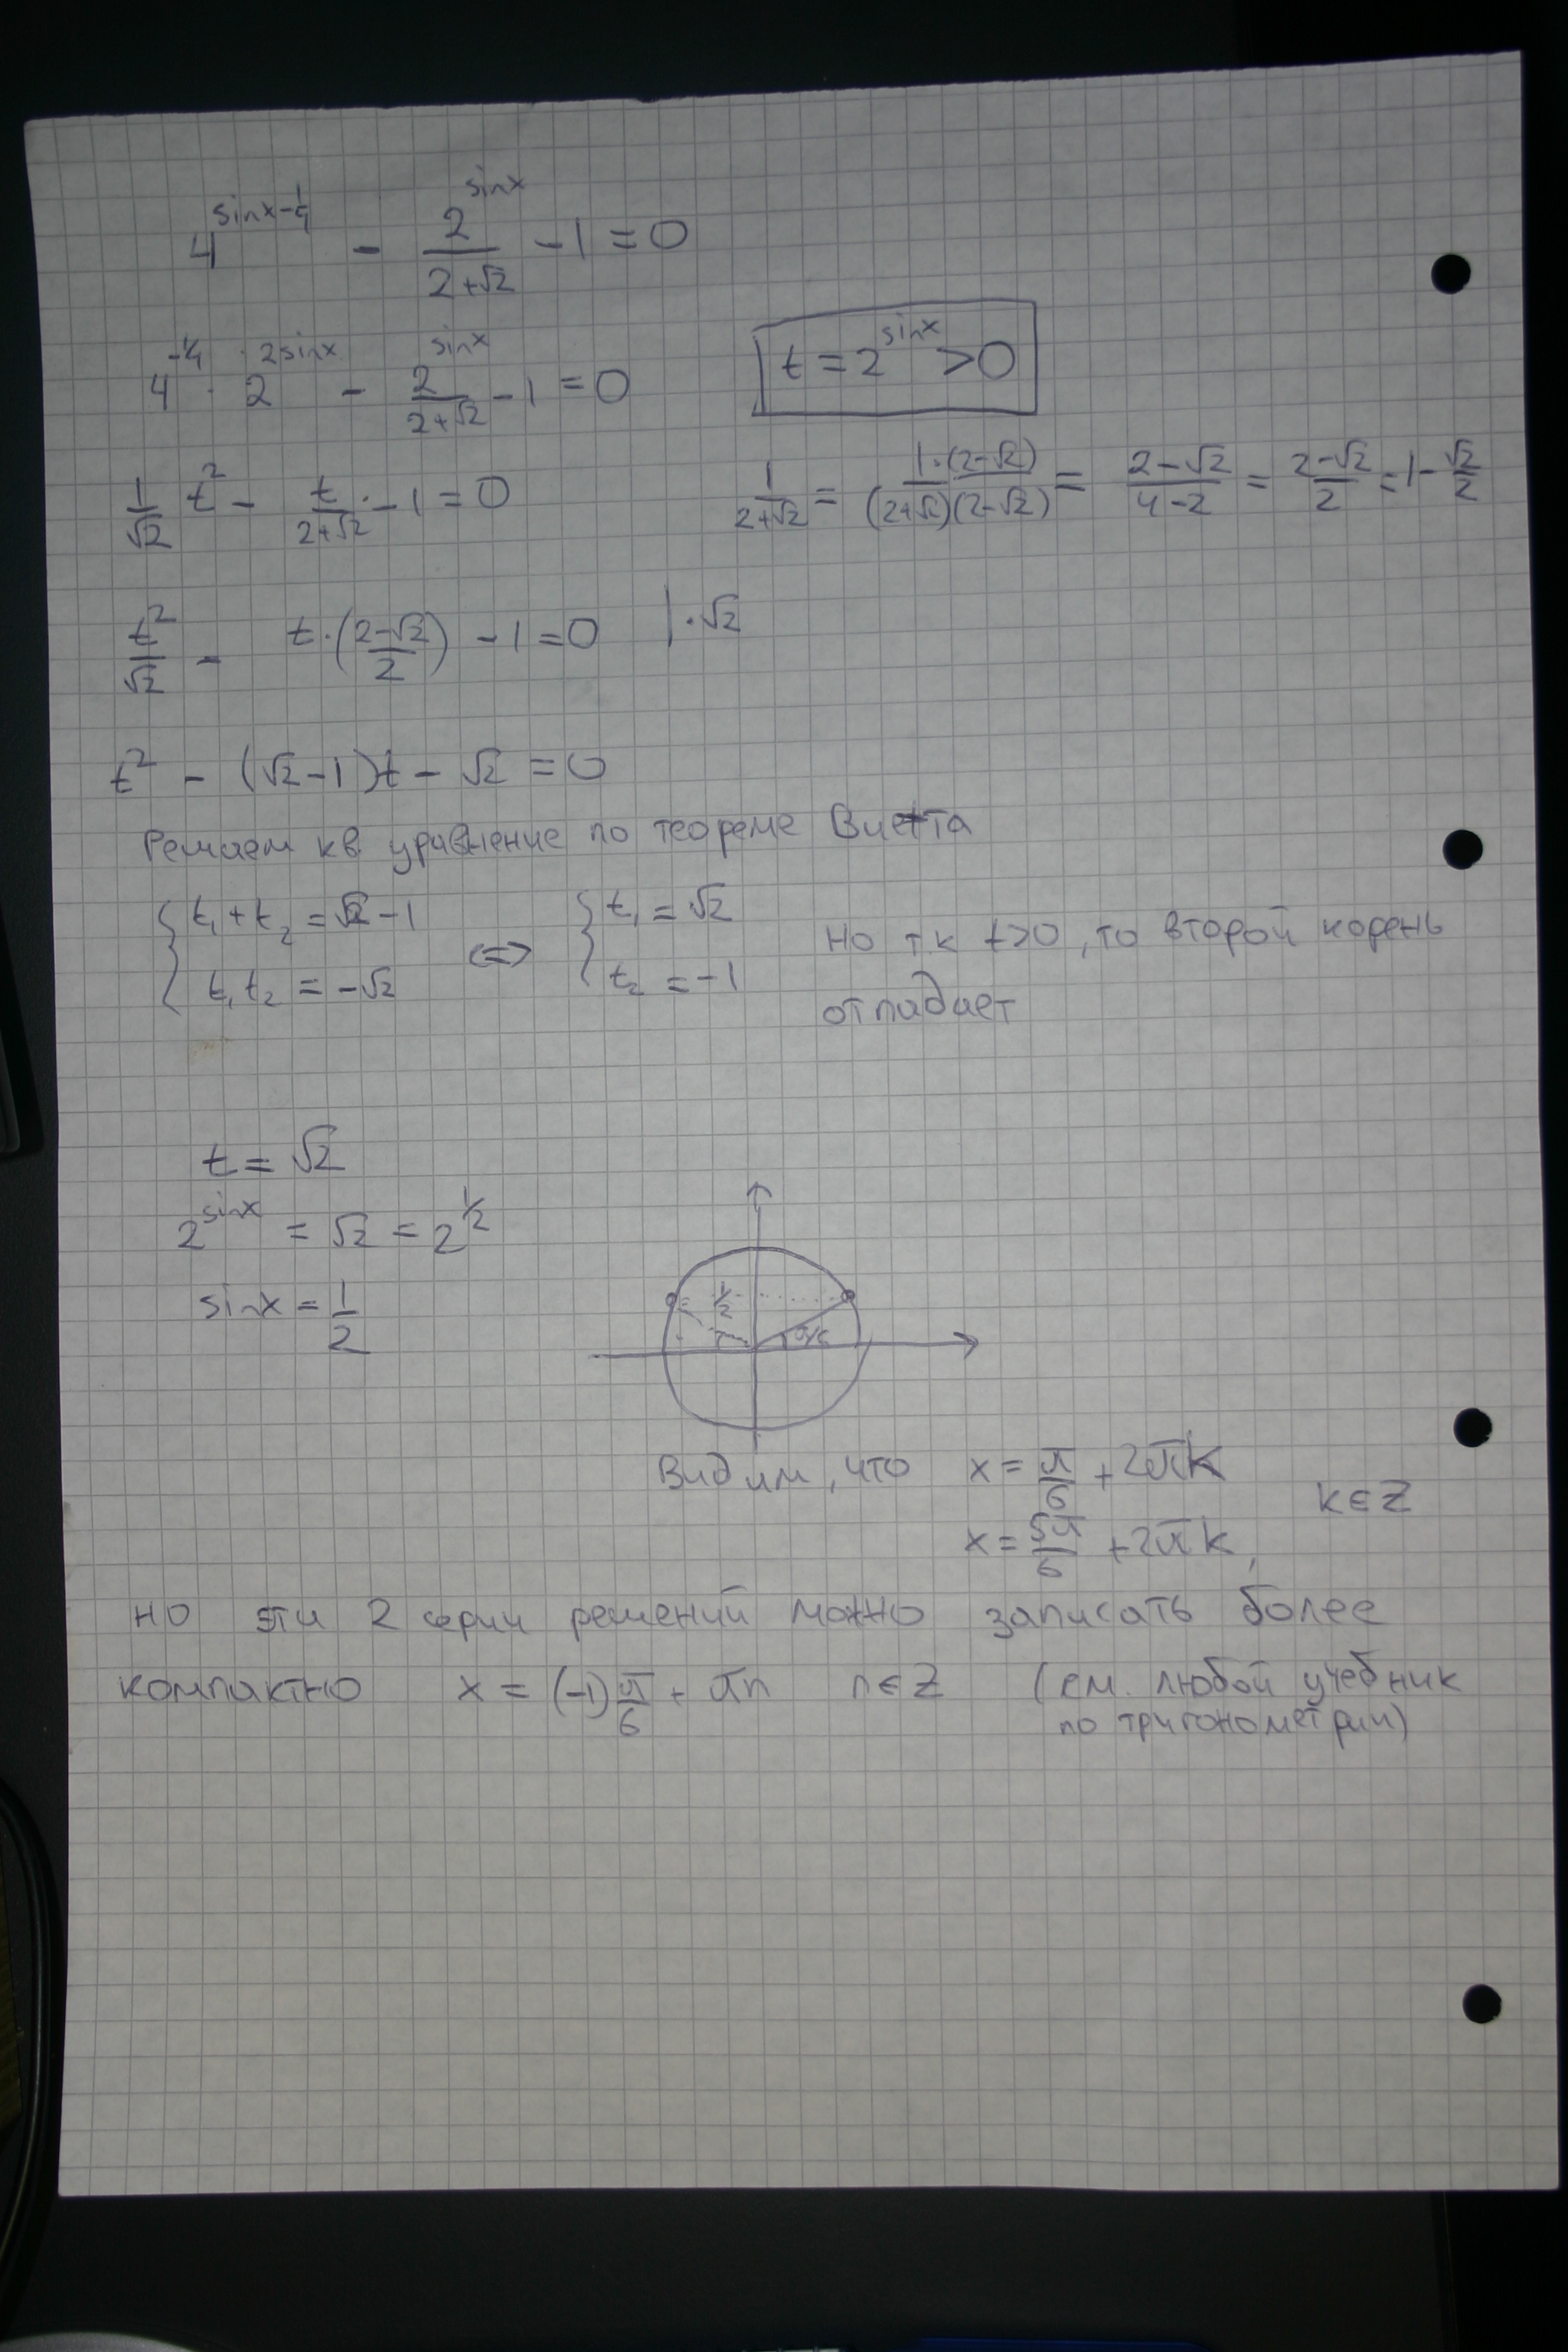 4^(sinx-1/4) - 2^(sinx)/(2+√2) - 1 = 0
4^(-1/4) · 2^(2sinx) - 2^(sinx)/(2+√2) - 1 = 0
t = 2^(sinx) > 0
1/√2 t² - t/(2+√2) · - 1 = 0
1/(2+√2) = 1·(2-√2)/((2+√2)(2-√2)) = (2-√2)/(4-2) = (2-√2)/2 = 1 - √2/2
t²/√2 - t·((2-√2)/2) - 1 = 0 | ·√2
t² - (√2-1)t - √2 = 0
Решаем кв уравнение по теореме Виетта
{ t₁ + t₂ = √2 - 1
t₁ t₂ = -√2
<=>
{ t₁ = √2
t₂ = -1
Но тк t>0, то второй корень
отпадает
t = √2
2^(sinx) = √2 = 2^(1/2)
sinx = 1/2
1/2
π/6
Видим, что x = π/6 + 2πk
x = 5π/6 + 2πk,
k∈Z
но эти 2 серии решений можно записать более
компактно x = (-1)π/6 + πn n∈Z (см. любой учебник
по тригонометрии)